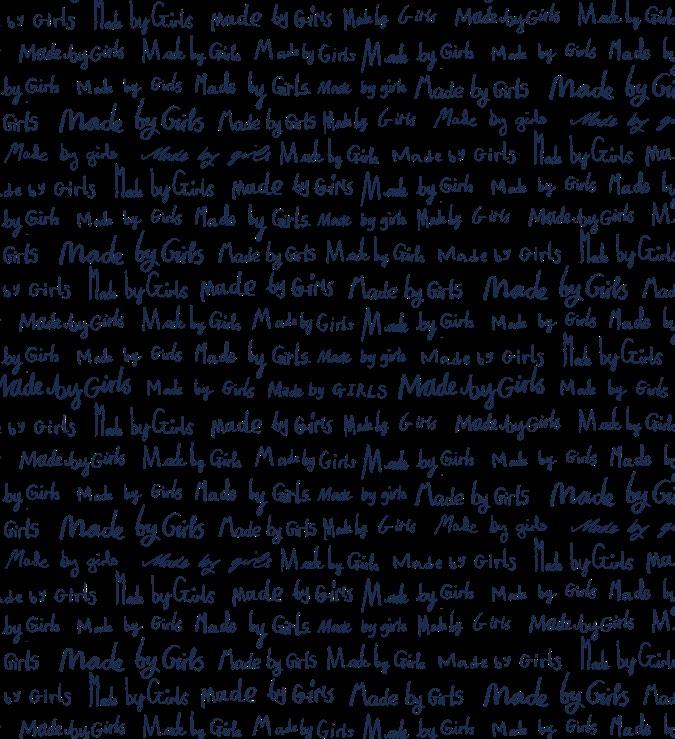 by Girls Made by Girls made by Girls Made by Girls Made by Girls Made by Girls
Made by Girls Made by Girls Made by Girls Made by Girls Made by Girls Made by
by Girls Made by Girls Made by Girls Made by girls Made by Girls Made by Gi
Girls Made by Girls Made by Girls Made by Girls Made by girls Made by g
Made by girls Made by girls Made by Girls Made by Girls Made by Girls ma
de by Girls Made by Girls made by Girls Made by Girls Made by Girls Made by
by Girls Made by Girls Made by Girls Made by girls Made by Girls Made by Girls M
Girls Made by Girls Made by Girls Made by Girls Made by Girls Made by Girls
by Girls Made by Girls made by Girls Made by Girls Made by Girls Mad
Made by Girls Made by Girls Made by Girls Made by Girls Made by Girls Made by
by Girls Made by Girls Made by Girls Made by girls Made by Girls Made by Girls
Made by Girls Made by Girls Made by GIRLS Made by Girls Made by Girls
by Girls Made by Girls made by Girls Made by Girls Made by Girls Made by Girls
Made by Girls Made by Girls Made by Girls Made by Girls Made by Girls Made by
by Girls Made by Girls Made by Girls Made by girls Made by Girls Made by Gi
Girls Made by Girls Made by Girls Made by Girls Made by girls Made by g
Made by girls Made by girls Made by Girls Made by Girls Made by Girls ma
de by Girls Made by Girls made by Girls Made by Girls Made by Girls Made by
by Girls Made by Girls Made by Girls Made by girls Made by Girls Made by Girls M
Girls Made by Girls Made by Girls Made by Girls Made by Girls Made by Girls
by Girls Made by Girls made by Girls Made by Girls Made by Girls Mad
Made by Girls Made by Girls Made by Girls Made by Girls Made by Girls Made by